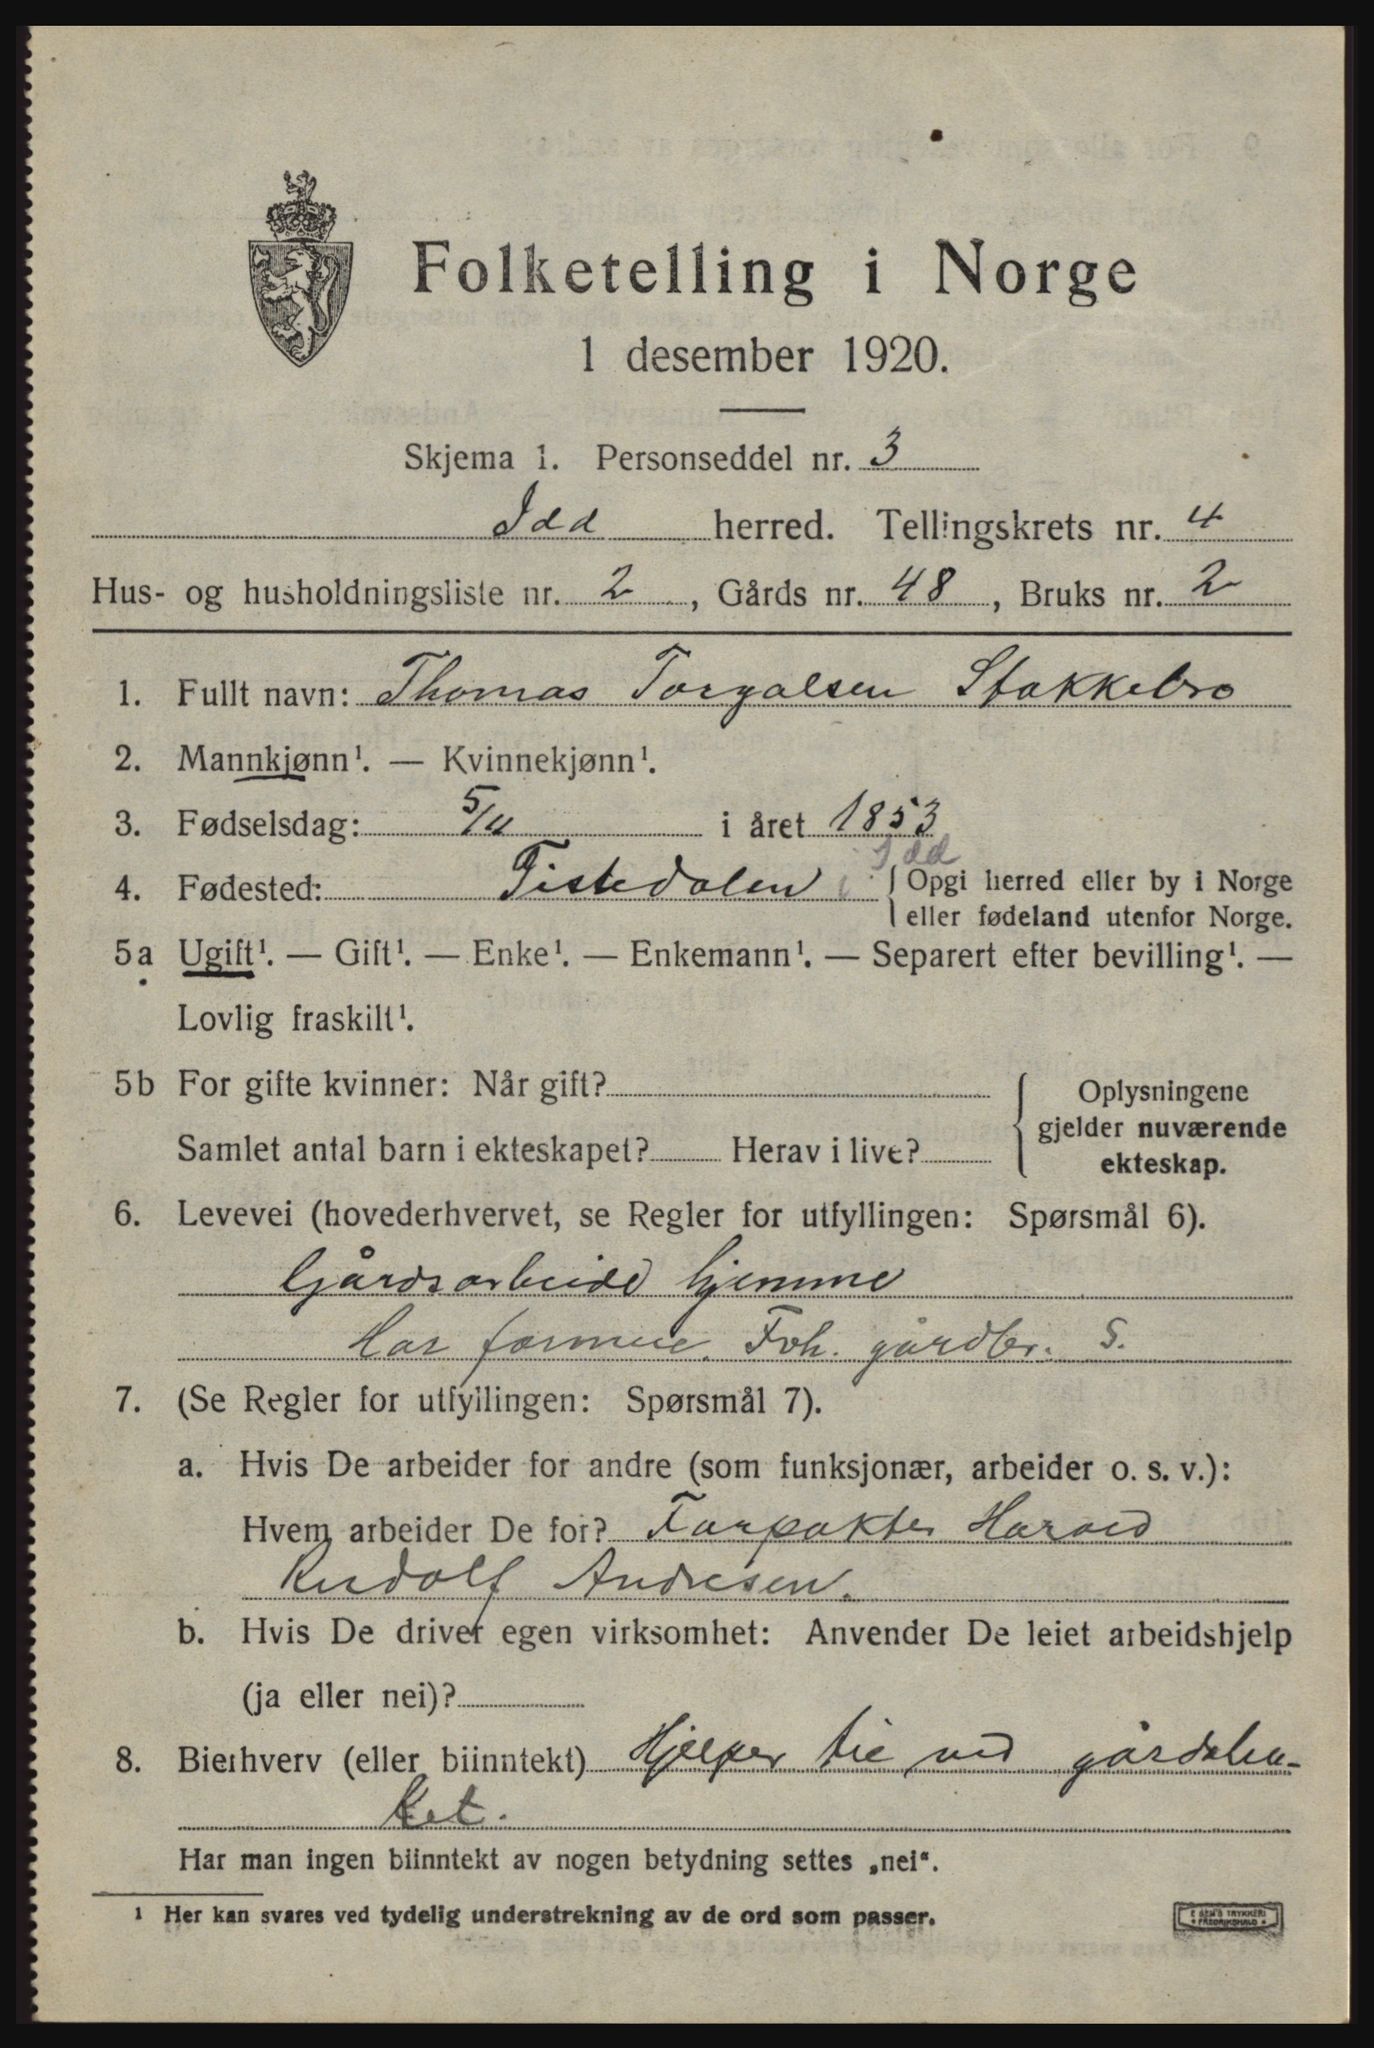 Folketelling i Norge
1 desember 1920.
Skjema 1. Personseddel nr. 3
Idd herred. Tellingskrets nr. 4
Hus- og husholdningsliste nr. 2, Gårds nr. 48, Bruks nr. 2
1. Fullt navn: Thomas Torgalsen Stokkebro
2. Mannkjønn¹. — Kvinnekjønn¹.
3. Fødselsdag: 5/11 i året 1853
i Idd
4. Fødested: Tistedalen { Opgi herred eller by i Norge
eller fødeland utenfor Norge.
5a Ugift¹. — Gift¹. — Enke¹. — Enkemann¹. — Separert efter bevilling¹. —
Lovlig fraskilt¹.
5b For gifte kvinner: Når gift?
Samlet antal barn i ekteskapet? Herav i live?
{ Oplysningene
gjelder nuværende
ekteskap.
6. Levevei (hovederhvervet, se Regler for utfyllingen: Spørsmål 6).
Gårdsarbeide hjemme
Har formue. Fvh. gårdbr. S.
7. (Se Regler for utfyllingen: Spørsmål 7).
a. Hvis De arbeider for andre (som funksjonær, arbeider o. s. v.):
Hvem arbeider De for? Forpakter Harald
Rudolf Andresen.
b. Hvis De driver egen virksomhet: Anvender De leiet arbeidshjelp
(ja eller nei)?
8. Bierhverv (eller biinntekt) Hjelper til ved gårdsbru-
ket.
Har man ingen biinntekt av nogen betydning settes „nei“.
¹ Her kan svares ved tydelig understrekning av de ord som passer.
SEN'S TRYKKERI
FREDRIKSHALD